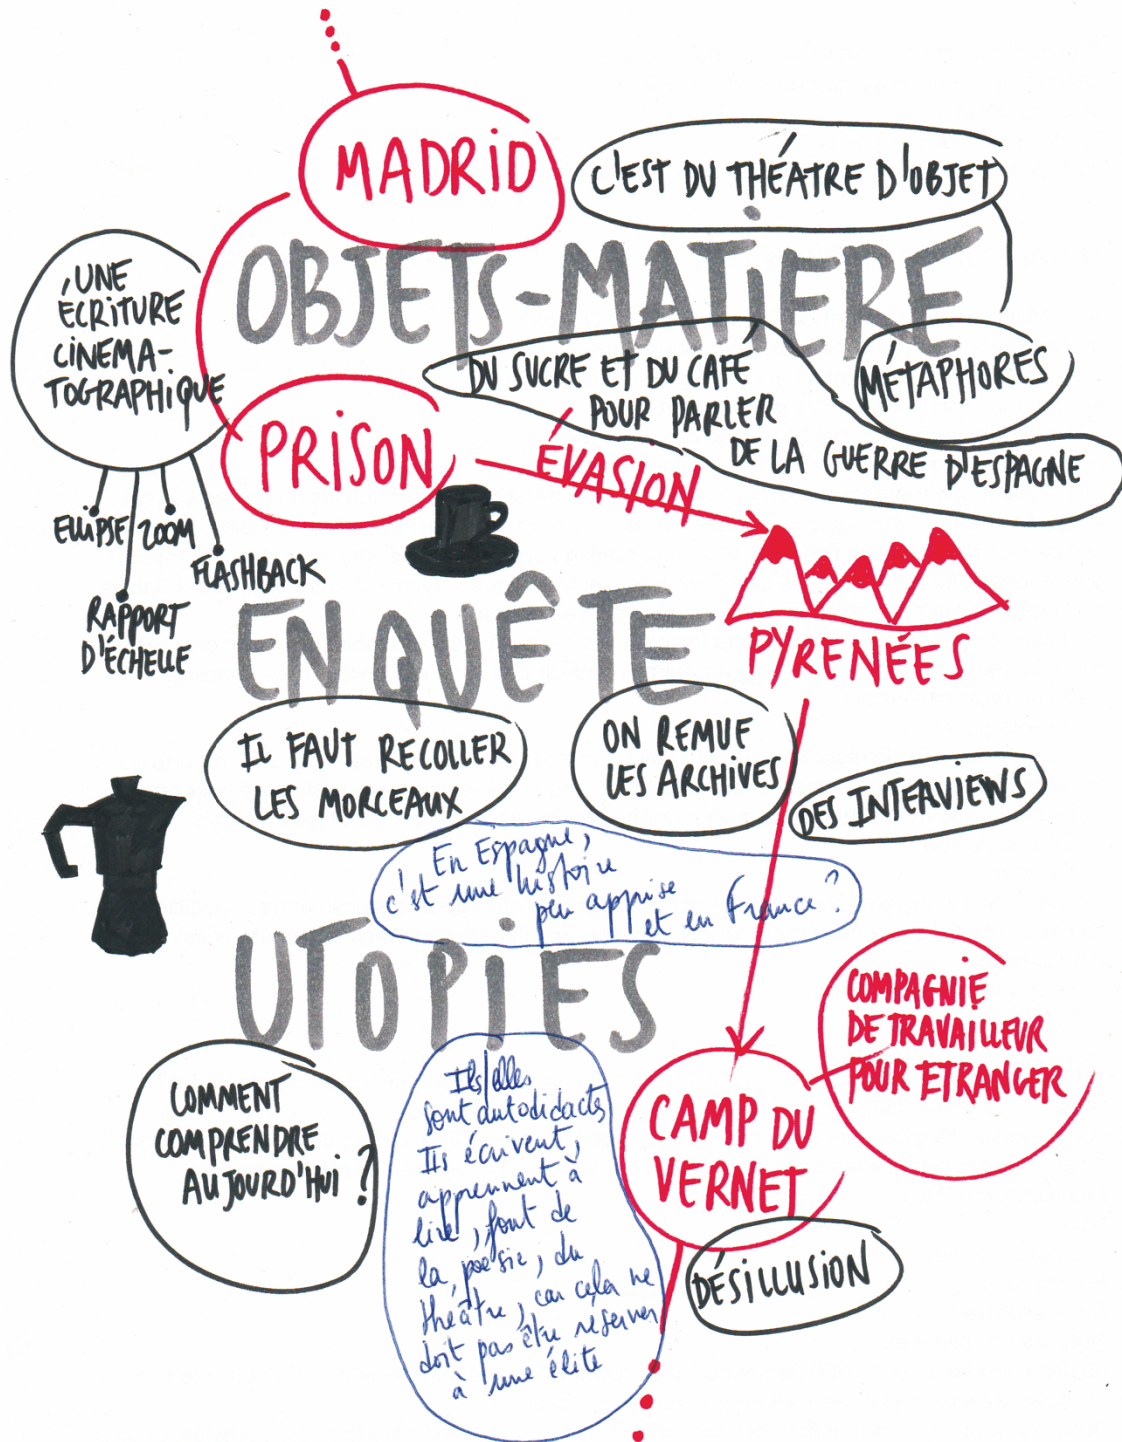 MADRID
C'EST DU THÉATRE D'OBJET
OBJETS-MATIERE
UNE
ÉCRITURE
CINEMA-
TOGRAPHIQUE
DU SUCRE ET DU CAFÉ
POUR PARLER
DE LA GUERRE D'ESPAGNE
MÉTAPHORES
PRISON
ÉVASION
ELLIPSE
ZOOM
FLASHBACK
RAPPORT
D'ÉCHELLE
PYRENÉES
ENQUÊTE
IL FAUT RECOLLER
LES MORCEAUX
ON REMUE
LES ARCHIVES
DES INTERVIEWS
En Espagne,
c'est une histoire
peu apprise
et en France ?
UTOPIES
COMPAGNIE
DE TRAVAILLEUR
POUR ETRANGER
COMMENT
COMPRENDRE
AUJOURD'HUI ?
Ils/elles
sont autodidactes
Ils écrivent,
apprennent à
lire, font de
la poésie, du
théâtre, car cela ne
doit pas être réserver
à une élite
CAMP DU
VERNET
DÉSILLUSION